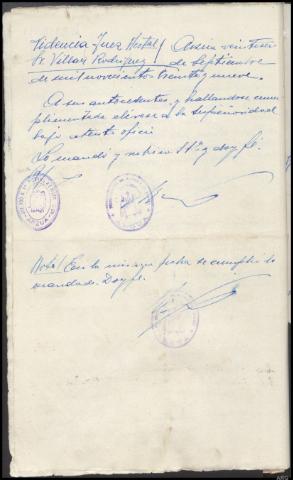 Providencia Juez Hostal / A veintiseis
Sr. Villar Rodriguez / de Septiembre
de mil novecientos treinta y nueve.
A sus antecedentes, y hallandose cum
plimentado elévese a la Superioridad
bajo atento oficio
Lo mandó y rubrica SSª, doy fé.
Nota / En la misma fecha se cumplió lo
mandado. Doy fé.